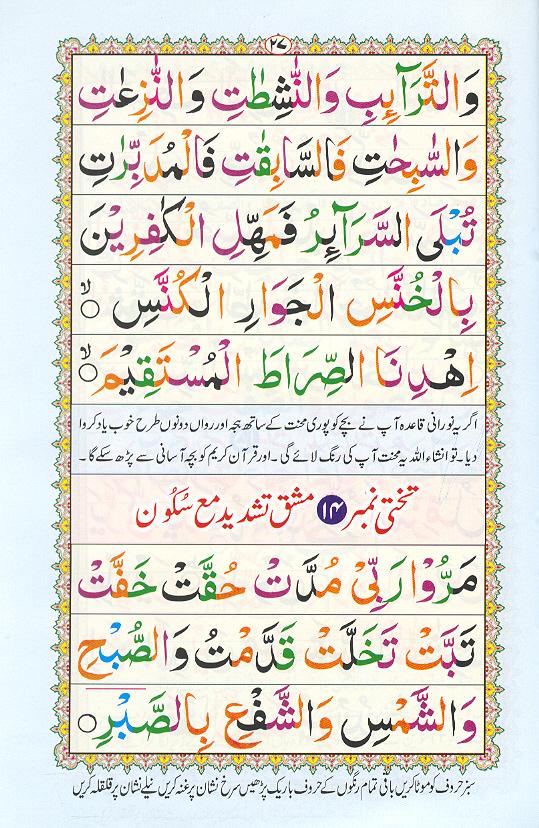 ۲۷
وَالتَّرَآئِبِ وَالنّٰشِطٰتِ وَالنّٰزِعٰتِ
وَالسّٰبِحٰتِ فَالسَّابِقٰتِ فَالْمُدَبِّرٰتِ
تُبْلَى السَّرَآئِرُ فَمَهِّلِ الْكٰفِرِيْنَ
بِالْخُنَّسِ الْجَوَارِ الْكُنَّسِ ۙ
اِهْدِنَا الصِّرَاطَ الْمُسْتَقِيْمَ ۙ
اگر یہ نورانی قاعدہ آپ نے بچے کو پوری محنت کے ساتھ ہجہ اور رواں دونوں طرح خوب یاد کروا
دیا۔ تو انشاء اللہ یہ محنت آپ کی رنگ لائے گی۔ اور قرآن کریم کو بچہ آسانی سے پڑھ سکے گا۔
تختی نمبر ۱۴ مشق تشدید مع سکون
مَرُّوْا رَبِّىْ مُدَّتْ حُقَّتْ خَفَّتْ
تَبَّتْ تَخَلَّتْ قَدَّمْتُ وَالصُّبْحِ
وَالشَّمْسِ وَالشَّفْعِ بِالصَّبْرِ
سبز حروف کو موٹا کریں باقی تمام رنگوں کے حروف باریک پڑھیں سرخ نشان پر غنہ کریں نیلے نشان پر قلقلہ کریں